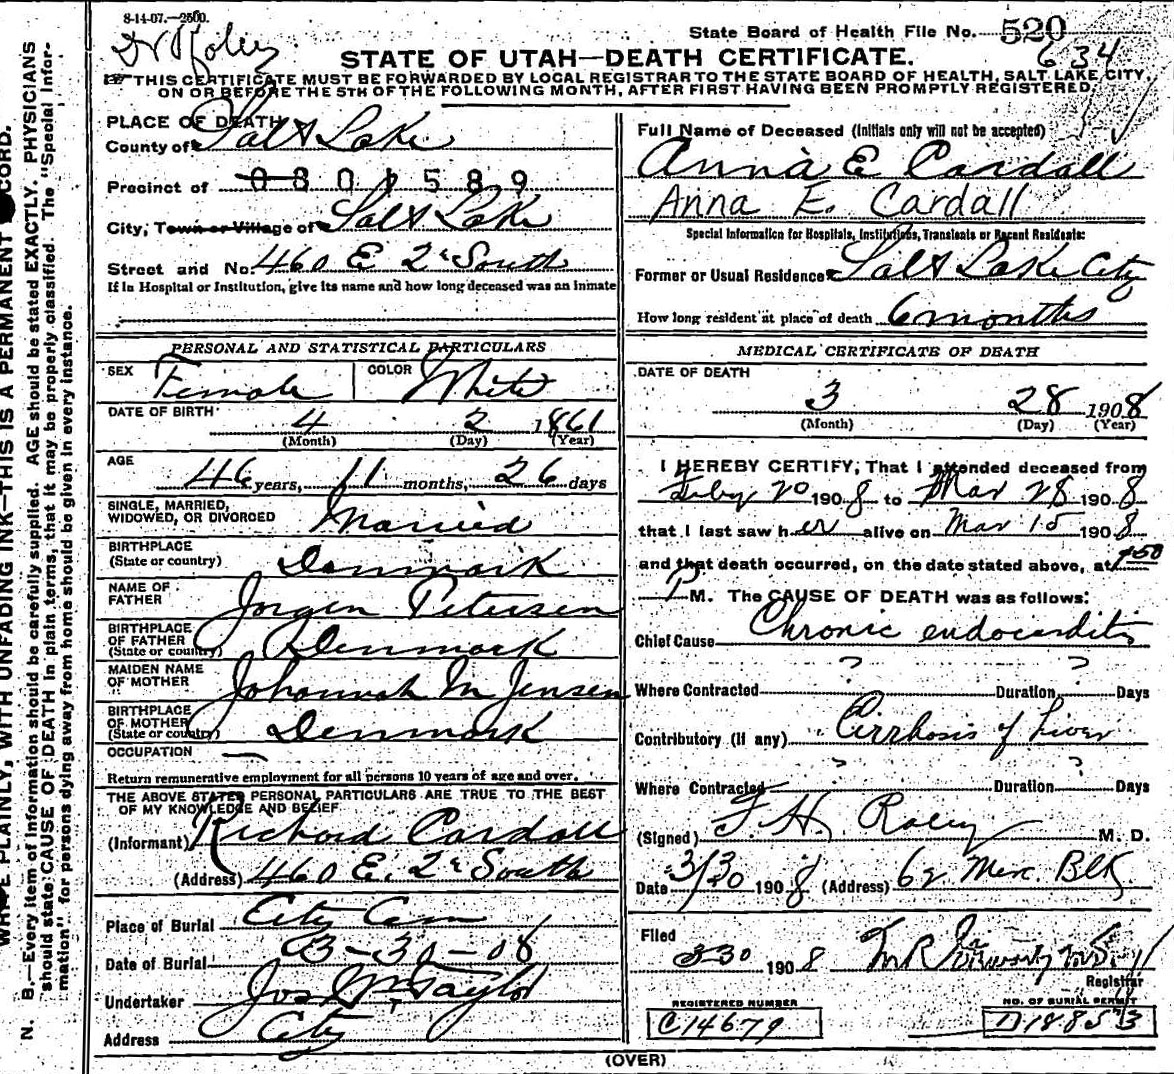 8-14-07.—2500.
State Board of Health File No. 520
634
STATE OF UTAH—DEATH CERTIFICATE.
THIS CERTIFICATE MUST BE FORWARDED BY LOCAL REGISTRAR TO THE STATE BOARD OF HEALTH, SALT LAKE CITY,
ON OR BEFORE THE 5TH OF THE FOLLOWING MONTH, AFTER FIRST HAVING BEEN PROMPTLY REGISTERED.
PLACE OF DEATH
County of Salt Lake
Precinct of 0801589
City, Town or Village of Salt Lake
Street and No. 460 E 2d South
If in Hospital or Institution, give its name and how long deceased was an inmate
Full Name of Deceased (Initials only will not be accepted)
Anna E Cardall
Anna E. Cardall
Special Information for Hospitals, Institutions, Transients or Recent Residents:
Former or Usual Residence Salt Lake City
How long resident at place of death 6 months
PERSONAL AND STATISTICAL PARTICULARS
SEX Female COLOR White
DATE OF BIRTH 4 2 1861
(Month) (Day) (Year)
AGE 46 years, 11 months, 26 days
SINGLE, MARRIED,
WIDOWED, OR DIVORCED Married
BIRTHPLACE
(State or country) Denmark
NAME OF
FATHER Jorgen Petersen
BIRTHPLACE
OF FATHER
(State or country) Denmark
MAIDEN NAME
OF MOTHER Johannah M Jensen
BIRTHPLACE
OF MOTHER
(State or country) Denmark
OCCUPATION —
Return remunerative employment for all persons 10 years of age and over.
THE ABOVE STATED PERSONAL PARTICULARS ARE TRUE TO THE BEST
OF MY KNOWLEDGE AND BELIEF
(Informant) Richard Cardall
(Address) 460 E. 2d South
Place of Burial City Cem
Date of Burial 3-30-08
Undertaker Jos Wm Taylor
Address City
MEDICAL CERTIFICATE OF DEATH
DATE OF DEATH
3 28 1908
(Month) (Day) (Year)
I HEREBY CERTIFY, That I attended deceased from
Feby 20 1908 to Mar 28 1908
that I last saw her alive on Mar 15 1908
and that death occurred, on the date stated above, at
P M. The CAUSE OF DEATH was as follows:
Chief Cause Chronic endocarditis
Where Contracted ? Duration ? Days
Contributory (If any) Cirrhosis of Liver
Where Contracted ? Duration ? Days
(Signed) F. H. Raley M. D.
Date 3/30 1908 (Address) 62 Merc. Blk
Filed
3-30 1908
Registrar
REGISTERED NUMBER
C14679
NO. OF BURIAL PERMIT
D18853
(OVER)
N. B.—Every item of information should be carefully supplied. AGE should be stated EXACTLY. PHYSICIANS
should state CAUSE OF DEATH in plain terms, that it may be properly classified. The "Special Infor-
mation" for persons dying away from home should be given in every instance.
WRITE PLAINLY, WITH UNFADING INK—THIS IS A PERMANENT RECORD.